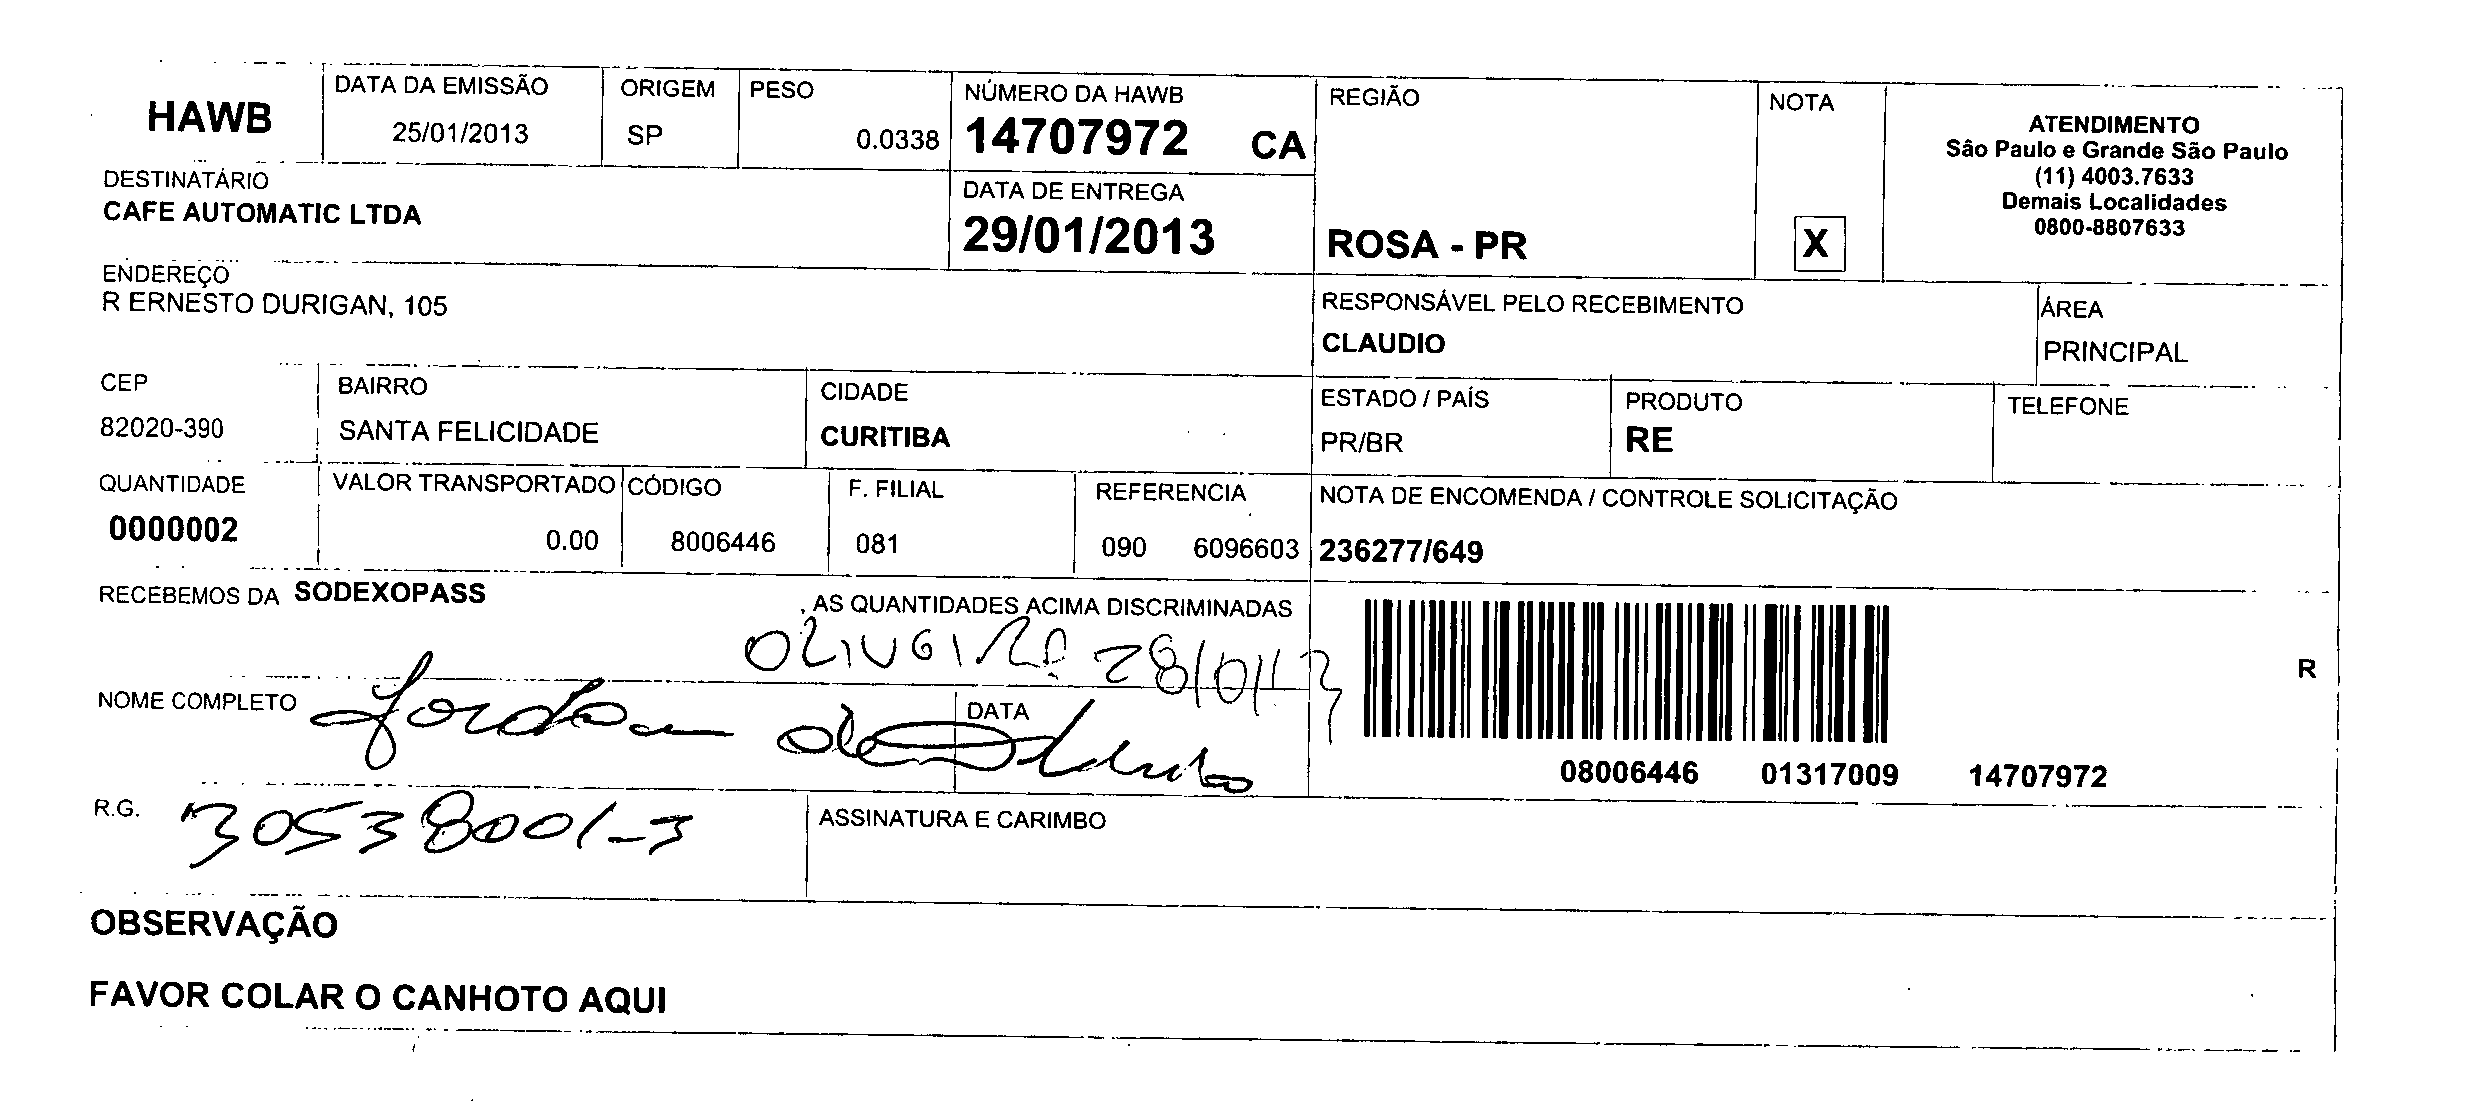 HAWB
DATA DA EMISSÃO
25/01/2013
ORIGEM
SP
PESO
0.0338
NÚMERO DA HAWB
14707972 CA
REGIÃO
ROSA - PR
NOTA
X
ATENDIMENTO
São Paulo e Grande São Paulo
(11) 4003.7633
Demais Localidades
0800-8807633
DESTINATÁRIO
CAFE AUTOMATIC LTDA
DATA DE ENTREGA
29/01/2013
ENDEREÇO
R ERNESTO DURIGAN, 105
RESPONSÁVEL PELO RECEBIMENTO
CLAUDIO
ÁREA
PRINCIPAL
CEP
82020-390
BAIRRO
SANTA FELICIDADE
CIDADE
CURITIBA
ESTADO / PAÍS
PR/BR
PRODUTO
RE
TELEFONE
QUANTIDADE
0000002
VALOR TRANSPORTADO
0.00
CÓDIGO
8006446
F. FILIAL
081
REFERENCIA
090 6096603
NOTA DE ENCOMENDA / CONTROLE SOLICITAÇÃO
236277/649
RECEBEMOS DA SODEXOPASS , AS QUANTIDADES ACIMA DISCRIMINADAS
28/01/13
R
NOME COMPLETO
DATA
08006446 01317009 14707972
R.G. 30538001-3
ASSINATURA E CARIMBO
OBSERVAÇÃO
FAVOR COLAR O CANHOTO AQUI